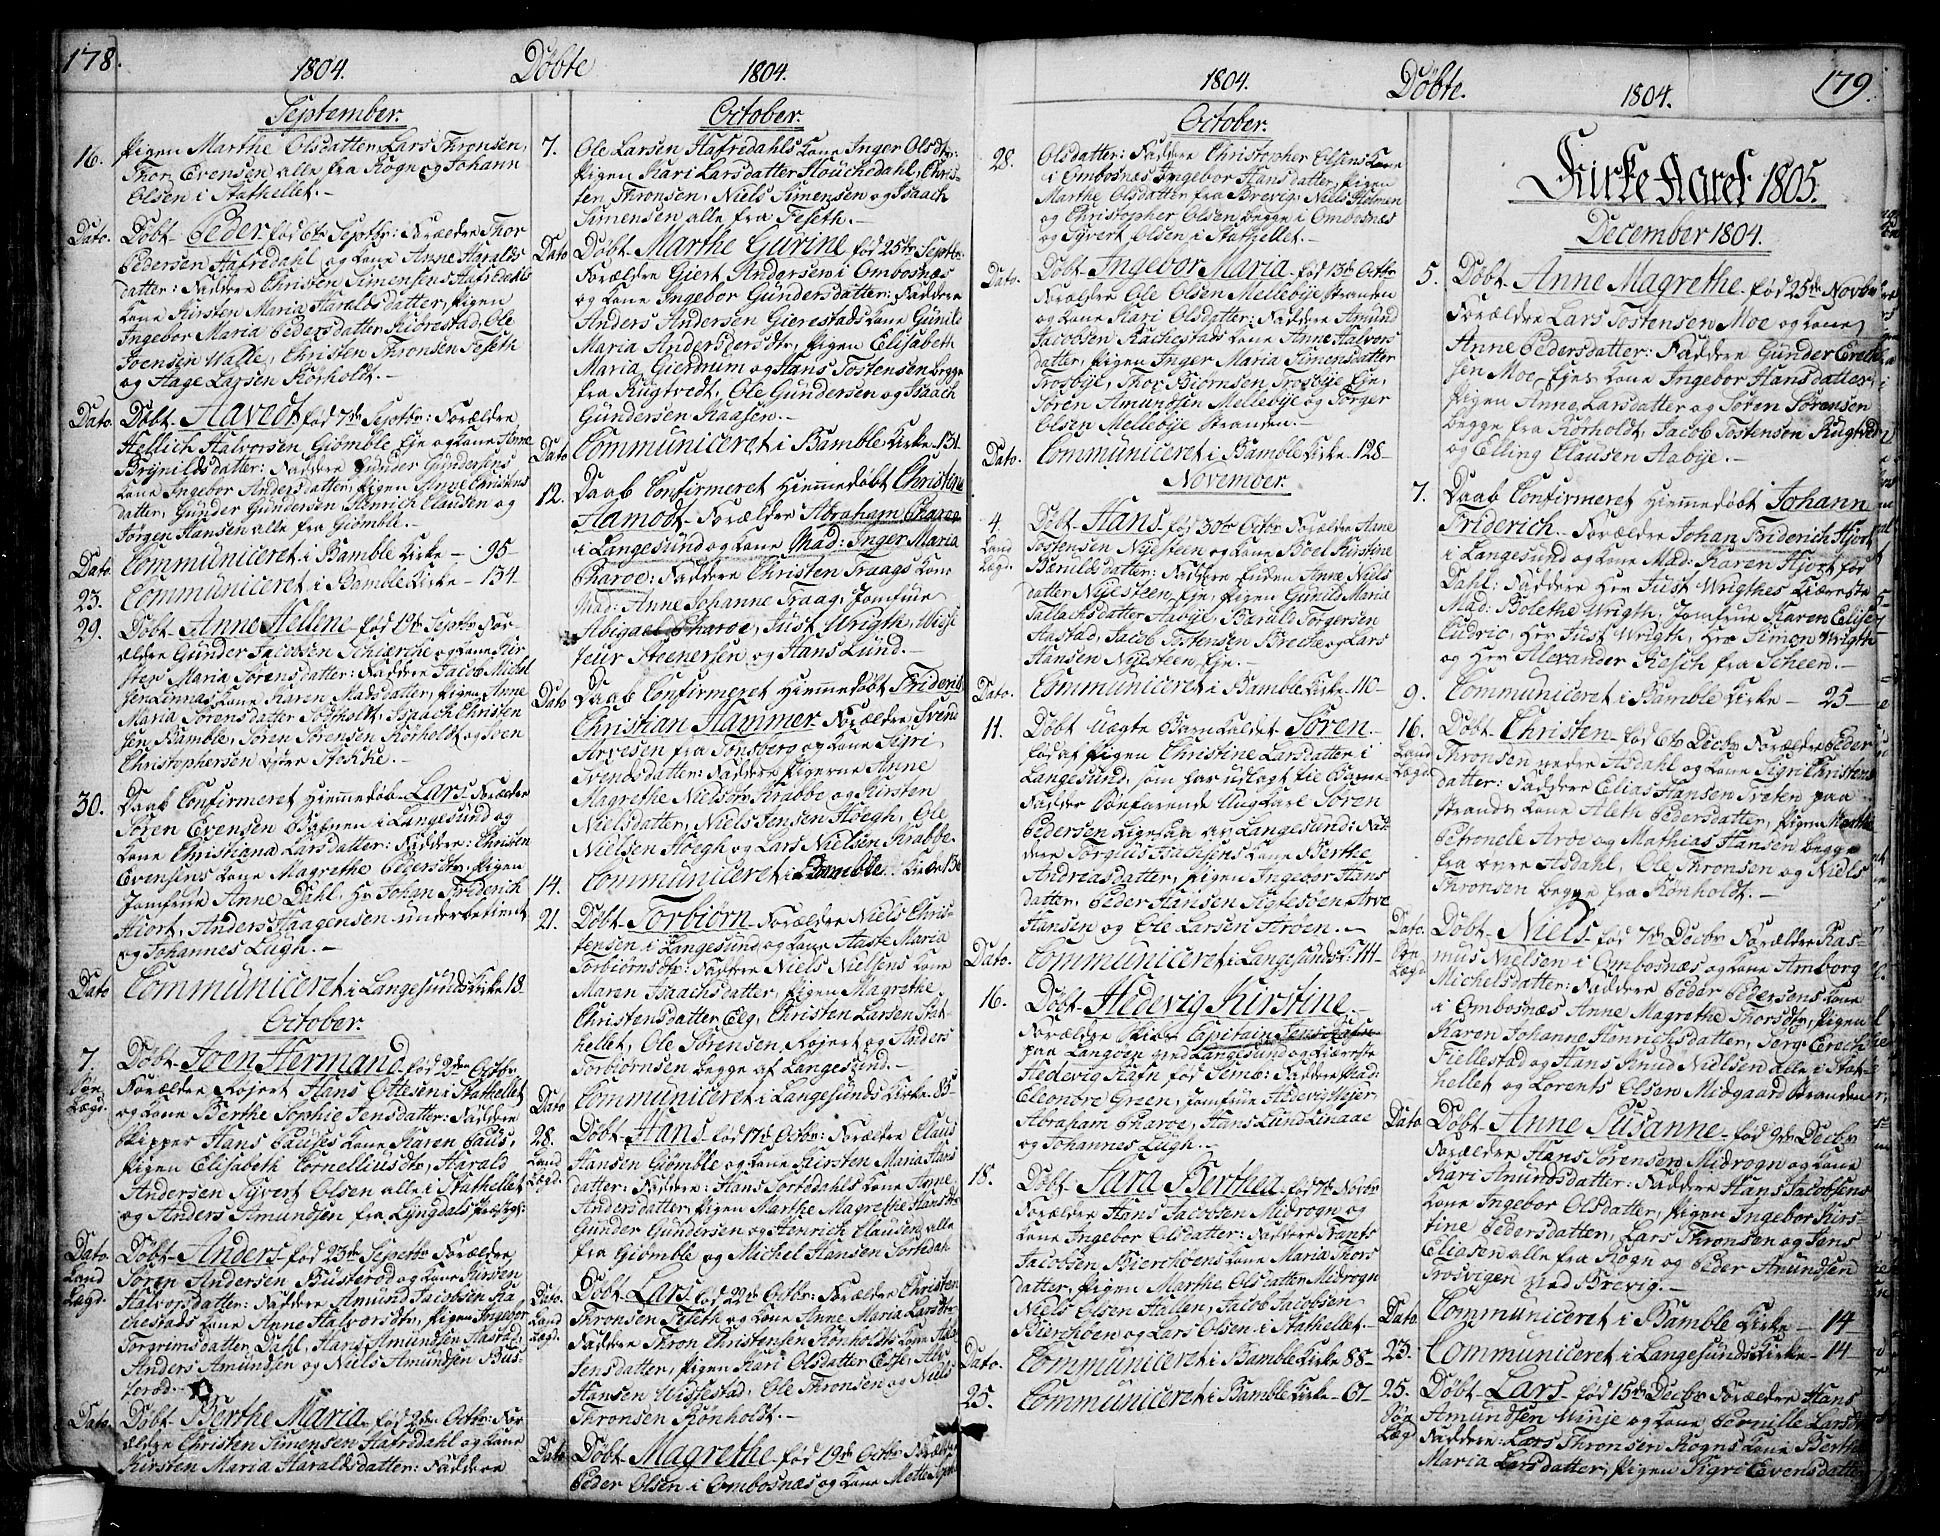 178.
1804. Döbte 1804.
September.
16. Pigen Marthe Olsdatter, Lars Thronsen,
Thor Evensen alle fra Rogn og Johann
Olsen i Stathellet.-
Dato. Döbt Peder. föd 6te Septbr: Forældre Thor
Pedersen Hafredahl og kone Anne Haralds
datter: Faddere Christen Simensens Hafredahls
kone Kirsten Maria Haraldsdatter, Pigen
Ingebor Maria Pedersdatter Kibrestad, Ole
Joensen Valle, Christen Thronsen Feseth
og Aage Larsen Körholdt.-
Dato. Döbt Aavedt föd 7de Septbr: Forældre
Hellich Halvorsen Giömble Eje og kone Anne
Brynildsdatter: Faddere Gunder Gundersens
kone Ingebor Andersdatter, Pigen Anne Christens
datter, Gunder Gundersen, Henrich Clausen og
Jörgen Hansen alle fra Giömble.-
Dato. Communiceret i Bamble Kirke - 95-
23. Communiceret i Bamble Kirke - 134-
29. Döbt Anne Hellene föd 19de Septbr For-
ældre Gunder Jacobsen Schierche og kone Kir-
sten Maria Sörensdatter: Faddere Jacob Michel
sen Linnas kone Karen Madsdatter, Pigen Anne
Maria Sörensdatter, Isaach Christen
sen Bamble, Sören Sörensen Körholdt og Joen
Christophersen övre Stokke.-
30. Daab Confirmeret Hiemmedöb Lars Forældre
Sören Evensen i Langesund og
kone Christiana Larsdatter: Faddere: Christen
Evensens kone Magrethe Pedersdtr, Pigen
Jomfrue Anne Dahl, Hr Johan Friderich
Hiort, Anders Haagensen underbetient
og Johannes Lugh.-
Dato Communiceret i Langesunds Kirke 18-
October.
7. Döbt Joen Hermand föd 2den Octbr
Forældre Kojert Hans Ottesen i Stathellet
Lægd. og kone Berthe Sophie Jensdatter: Faddere
Skipper Hans Pauses kone Karen Paus,
Pigen Elisabeth Cornelliusdtr, Harald
Andersen Syvert Olsen alle i Stathellet
og Anders Amundsen fra Lyngdals
Dato. Döbt Anders föd 23de Septbr Forældre
Land Sören Andersen Busteröd og kone Kirsten
Lægd. Halvorsdatter: Faddere Amund Jacobsen Ra
chestads kone Anne Halvorsdtr, Pigen Ingebor
Torgrimsdatter Dahl, Hans Amundsen Aastad,
Anders Amundsen og Niels Amundsen Bus-
teröd.-
Dato. Döbt Berthe Maria föd 2den Octbr: For-
ældre Christen Simensen Hafredahl og kone
Kirsten Maria Haraldsdatter: Faddere
October.
7. Ole Larsen Hafredahls kone Inger Olsdtr,
Pigen Kari Larsdatter Houchedahl, Chris-
ten Thronsen, Niels Simensen og Isaach
Simensen alle fra Feseth.-
Dato Döbt Marthe Gurine föd 25de Septbr
Forældre Giert Andersen i Ombosnæs
og kone Ingebor Gundersdatter: Faddere
Anders Andersen Gierestads kone Gunild
Maria Andersdtr, Pigen Elisabeth
Maria Gierdrum og Hans Tostensen begge
fra Rugtvedt, Ole Gundersen og Isaach
Gundersen Raasen.-
Dato Communiceret i Bamble Kirke - 131-
12. Daab Confirmeret Hiemmedöbt Christine
Aamodt Forældre Abraham Charoe
i Langesund og kone Mad: Inger Maria
Charoe: Faddere Christen Fraags kone
Mad: Anne Johanne Fraag, Jomfrue
Abigael Charoe, Just Wrigth, Musi
feur Steenersen og Hans Lund.-
Dato Daab Confirmeret Hiemmedöbt Friderich
Christian Hammer Forældre Svend
Arvesen fra Tönsberg og kone Sigri
Svendsdatter: Faddere Pigerne Anne
Magrethe Nielsdtr Krabbe og Kirsten
Nielsdatter, Niels Jensen Höegh, Ole
Nielsen Höegh og Lars Nielsen Krabbe-
14. Communiceret i Bamble Kirke 136
21. Döbt Torbiörn Forældre Niels Chris-
tensen i Langesund og kone Aaste Maria
Torbiörnsdtr: Faddere Niels Nielsens kone
Maren Isaachsdatter, Pigen Magrethe
Christensdatter Eeg, Christen Larsen Stat-
hellet, Ole Sörensen, Kojert og Anders
Torbiörnsen begge af Langesund.-
Dato Communiceret i Langesunds Kirke 83-
28. Döbt Hans föd 17de Octbr: Forældre Claus
Land Hansen Giömble og kone Kirsten Maria Hans
Lægd. datter: Faddere: Hans Tortedahls kone Anne
Andersdatter, Pigen Marthe Magrethe Hansdtr
Gunder Gundersen og Henrich Clausen alle
fra Giömble og Michel Hansen Tortedahl
Dato. Döbt Lars föd 22de Octbr: Forældre Christen
Land Thronsen Feseth og kone Anne Maria Larsdtr
Lægd. Faddere Thron Christensen Rönholdts kone
Jensdatter, Pigen Kari Olsdatter
Hansen Vissestad, Ole Thronsen og Niels
Thronsen Rönholdt.-
Dato Döbt Magrethe föd 19de Octbr Forældre
Peder Olsen i Ombosnæs og kone Mette
1804. Döbte. 1804. 179.
October.
28. Olsdatter: Faddere Christopher Olsens kone
i Ombosnæs Ingebor Hansdatter, Pigen
Marthe Olsdatter fra Brevig, Niels Holmen
og Christopher Olsen begge i Ombosnæs
og Syvert Olsen i Stathellet.-
Dato. Döbt Ingebor Maria föd 13de Octbr
Forældre Ole Olsen Mellebye Stranden
og kone Kari Olsdatter: Faddere Amund
Jacobsen Rachestads kone Anne Halvors
datter, Pigen Inger Maria Simensdatter
Trosbye, Thor Biörnsen Trosbye Eje,
Sören Amundsen Mellebye og Torger
Olsen Mellebye Stranden.-
Dato. Communiceret i Bamble Kirke 128-
November.
4. Döbt Hans föd 30te Octbr Forældre Arne
Land Tostensen Nyesteen og kone Boel Kirstine
Lægd. Baruldsdatter: Faddere Enken Anne Niels
datter Nyesteen Eje, Pigen Gunild Maria
Tallachsdatter Aabye, Baruld Torgersen
Aastad, Jacob Tostensen Breche og Lars
Hansen Nyesteen Eje.-
Dato. Communiceret i Bamble Kirke - 110-
11. Döbt Uægte Barn kaldet Sören
föd af Pigen Christine Larsdatter i
Langesund, som har udlagt til Barne
Fadder Söefarende Ungkarl Sören
Pedersen ligesaa av Langesund: Fad-
dere Torgius Isachsens kone Berthe
Andreasdatter, Pigen Ingebor Hans
datter, Peder Hansen Sigtesöen, Arve
Hansen og Ole Larsen Aröen.-
Dato. Communiceret i Langesunds K: 44-
16. Döbt Hedevig Kirstine
Forældre Capitain Jens Rafn
paa Langöen ved Langesund og Kiæreste
Hedevig Rafn föd Seme: Faddere Mad:
Eleonore Green, Jomfrue Hedevig Vejer,
Abraham Charoe, Hans Lund Linaae
og Johannes Lugh.-
18. Döbt Sara Berthea föd 7de Novbr
Forældre Hans Jacobsen Midrogn og
kone Ingebor Olsdatter: Faddere Frants
Jacobsen Bierchöens kone Maria Thors
datter, Pigen Marthe Olsdatter Midrogn
Niels Olsen Hallen, Jacob Jacobsen
Bierchöen og Lars Olsen i Stathellet-
Dato. Communiceret i Bamble Kirke 88-
25. Communiceret i Bamble Kirke - 67-
Kirke Aaret 1805.
December 1804.
5. Döbt Anne Magrethe föd 25de Novbr
Forældre Lars Tostensen Moe og kone
Anne Pedersdatter: Faddere Gunder Erich
sen Moe, Ejes kone Ingebor Hansdatter,
Pigen Anne Larsdatter og Sören Sörensen
begge fra Körholdt, Jacob Tostensen Rugtvedt
og Elling Clausen Aabye.-
7. Daab Confirmeret Hiemmedöbt Johann
Friderich. Forældre Johan Friderich Hjort
i Langesund og kone Mad: Karen Hjort föd
Dahl: Faddere Her Just Wrigthes Kiæreste
Mad: Bolethe Wrigth, Jomfrue Karen Elise
Cudrio, Her Just Wrigth, Her Simon Wrigth
og Her Alexander Resch fra Scheen.-
9. Communiceret i Bamble Kirke - 25-
16. Döbt Christen föd 6te Decbr Forældre Peder
Land Thronsen nedre Asdahl og kone Sigri Christens
Lægd. datter: Faddere Elias Hansen Traten paa
Strands kone Aleth Pedersdatter, Pigen Marthe
Petronele Aröe og Mathias Hansen begge
fra övre Asdahl, Ole Thronsen og Niels
Thronsen begge fra Rönholdt.-
Dato. Döbt Niels föd 7de Decbr Forældre Ras-
mus Nielsen i Ombosnæs og kone Amborg
Lægd Michelsdatter: Faddere Peder Pedersens kone
i Ombosnæs Anne Magrethe Thorsdtr, Pigen
Karen Johanne Henrichsdatter, Jörg. Erech
Fiellestad og Hans Knud Nielsen alle i Stat-
hellet og Lorents Olsen Midgaard Stranden
Dato Döbt Anne Susanne föd 9de Decbr
Forældre Hans Sörensen Midrogn og kone
Kari Amundsdatter: Faddere Hans Jacobsens
kone Ingebor Olsdatter, Pigen Ingebor Kirs-
tine Pedersdatter, Lars Thronsen og Jens
Eliasen alle fra Rogn og Peder Amundsen
Trosvigen ved Brevig.-
Dato. Communiceret i Bamble Kirke - 14-
23. Communiceret i Langesunds Kirke - 14-
25. Döbt Lars föd 15de Decbr Forældre Hans
Amundsen Vinje og kone Pernille Larsdtr
Lægd Faddere: Lars Thronsen Rogns kone Berthe
Maria Larsdatter, Pigen Sigri Evensdatter